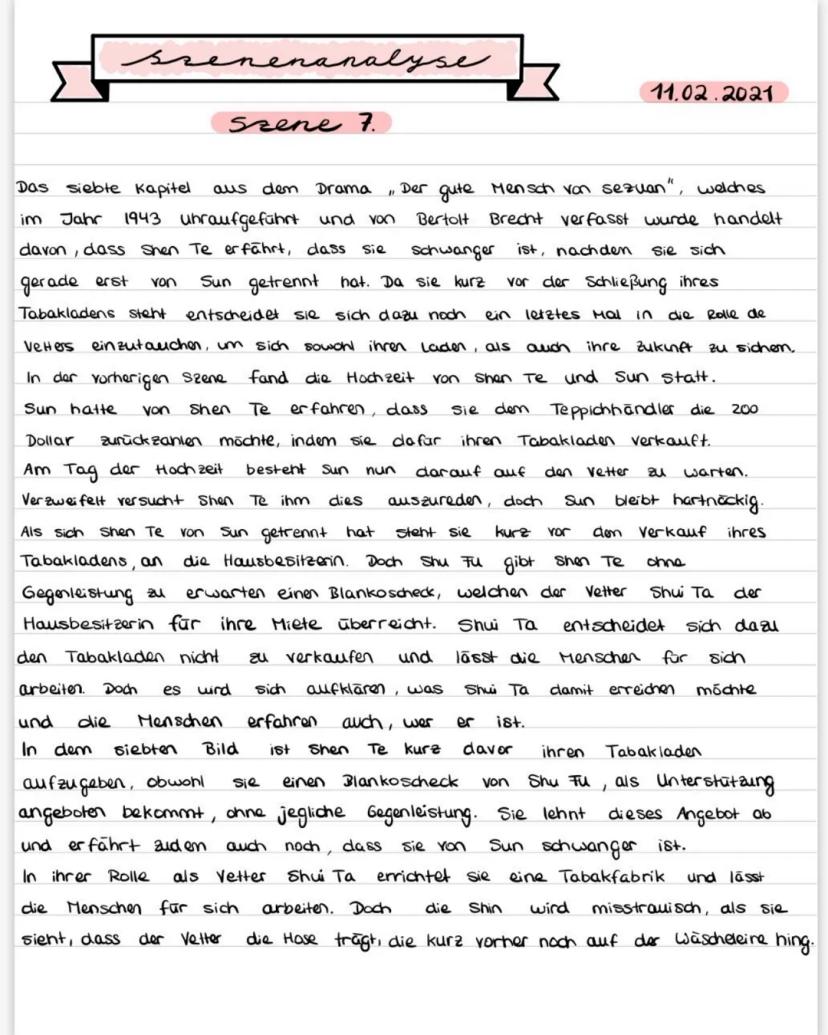 Szenenanalyse
11.02.2021
Szene 7.
Das siebte Kapitel aus dem Drama „Der gute Mensch von Sezuan", welches
im Jahr 1943 uhraufgeführt und von Bertolt Brecht verfasst wurde handelt
davon, dass Shen Te erfährt, dass sie schwanger ist, nachdem sie sich
gerade erst von Sun getrennt hat. Da sie kurz vor der Schließung ihres
Tabakladens steht entscheidet sie sich dazu noch ein letztes Mal in die Rolle de
Vetters einzutauchen, um sich sowohl ihren Laden, als auch ihre Zukunft zu sichern.
In der vorherigen Szene fand die Hochzeit von Shen Te und Sun statt.
Sun hatte von Shen Te erfahren, dass sie dem Teppichhändler die 200
Dollar zurückzahlen möchte, indem sie dafür ihren Tabakladen verkauft.
Am Tag der Hochzeit besteht Sun nun darauf auf den Vetter zu warten.
Verzweifelt versucht Shen Te ihm dies auszureden, doch Sun bleibt hartnäckig.
Als sich Shen Te von Sun getrennt hat steht sie kurz vor dem Verkauf ihres
Tabakladens, an die Hausbesitzerin. Doch Shu Fu gibt Shen Te ohne
Gegenleistung zu erwarten einen Blankoscheck, welchen der Vetter Shui Ta der
Hausbesitzerin für ihre Miete überreicht. Shui Ta entscheidet sich dazu
den Tabakladen nicht zu verkaufen und lässt die Menschen für sich
arbeiten. Doch es wird sich aufklären, was Shui Ta damit erreichen möchte
und die Menschen erfahren auch, wer er ist.
In dem siebten Bild ist Shen Te kurz davor ihren Tabakladen
aufzugeben, obwohl sie einen Blankoscheck von Shu Fu, als Unterstützung
angeboten bekommt, ohne jegliche Gegenleistung. Sie lehnt dieses Angebot ab
und erfährt zudem auch noch, dass sie von Sun schwanger ist.
In ihrer Rolle als Vetter Shui Ta errichtet sie eine Tabakfabrik und lässt
die Menschen für sich arbeiten. Doch die Shin wird misstrauisch, als sie
sieht, dass der Vetter die Hose trägt, die kurz vorher noch auf der Wäscheleine hing.